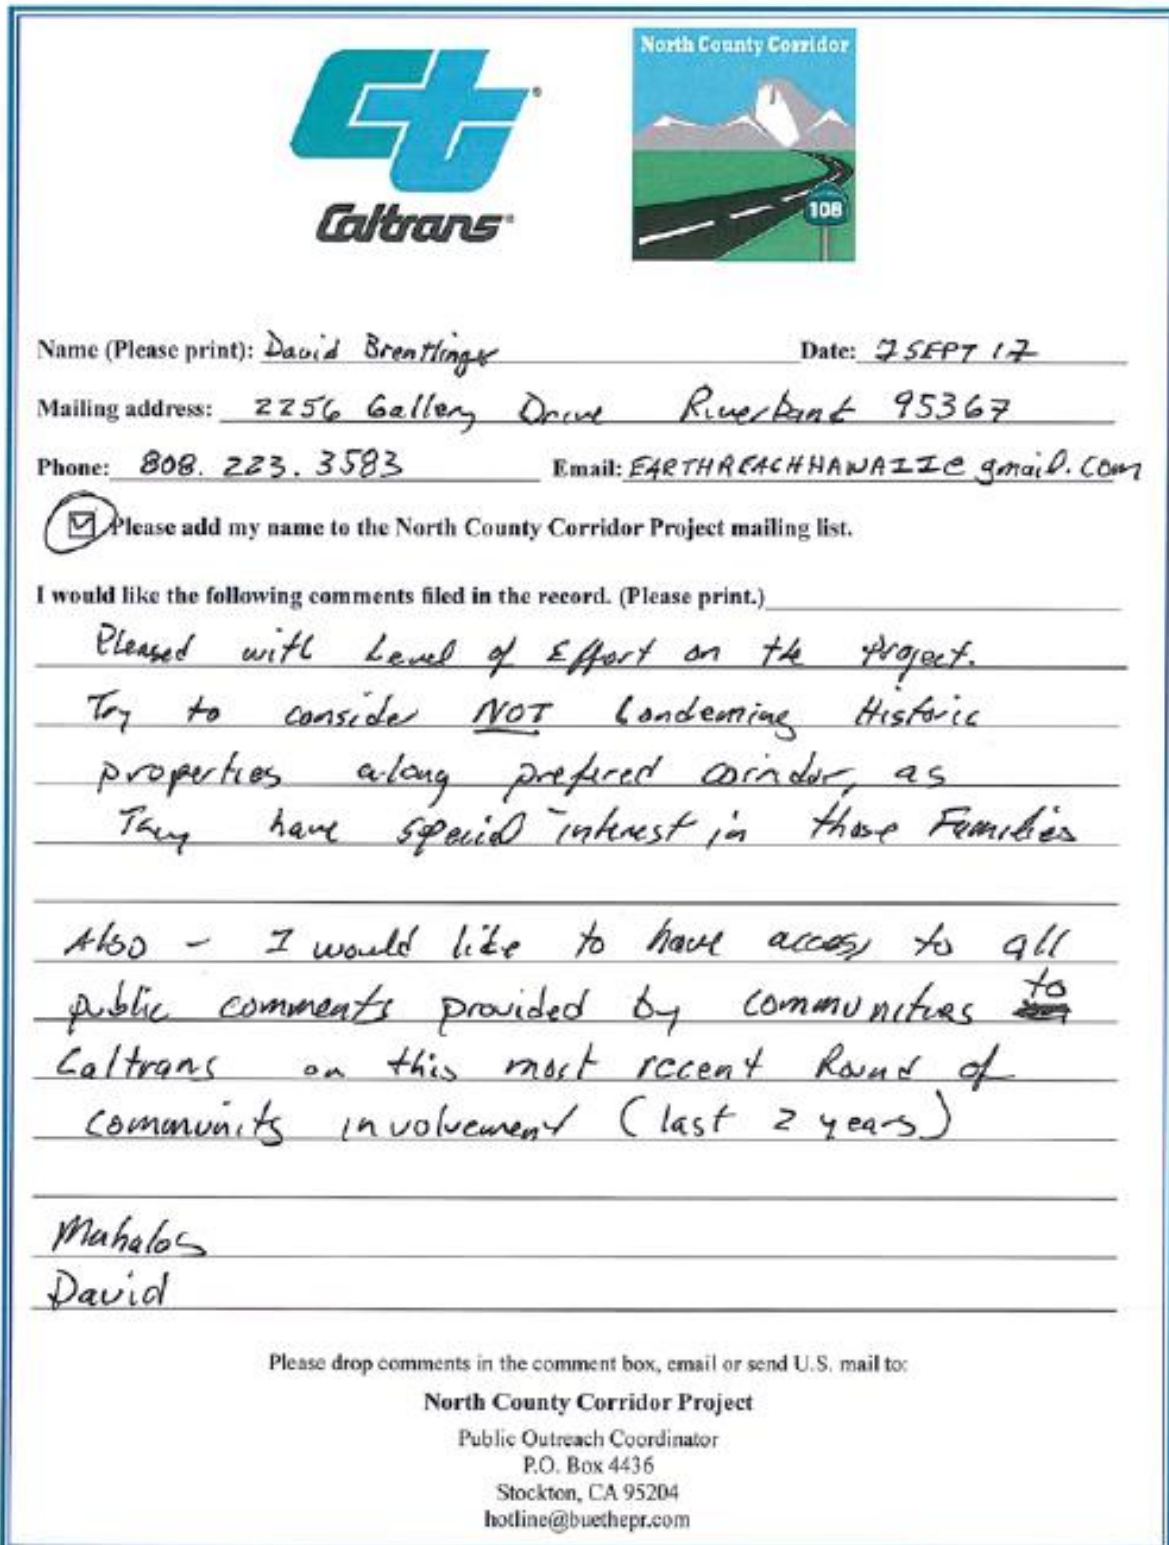 North County Corridor
Ct
Caltrans
108
Name (Please print): David Brentlinger Date: 7 SEPT 17
Mailing address: 2256 Gallery Drive Riverbank 95367
Phone: 808. 223. 3583 Email: EARTHREACHHAWAII@gmail.com
Please add my name to the North County Corridor Project mailing list.
I would like the following comments filed in the record. (Please print.)
Pleased with Level of Effort on the project.
Try to consider NOT Condeming Historic
properties along prefered corindor, as
They have special interest in those Families
Also - I would like to have access to all
public comments provided by communities to
Caltrans on this most recent Round of
community involvement (last 2 years)
Mahalos
David
Please drop comments in the comment box, email or send U.S. mail to:
North County Corridor Project
Public Outreach Coordinator
P.O. Box 4436
Stockton, CA 95204
hotline@buethepr.com